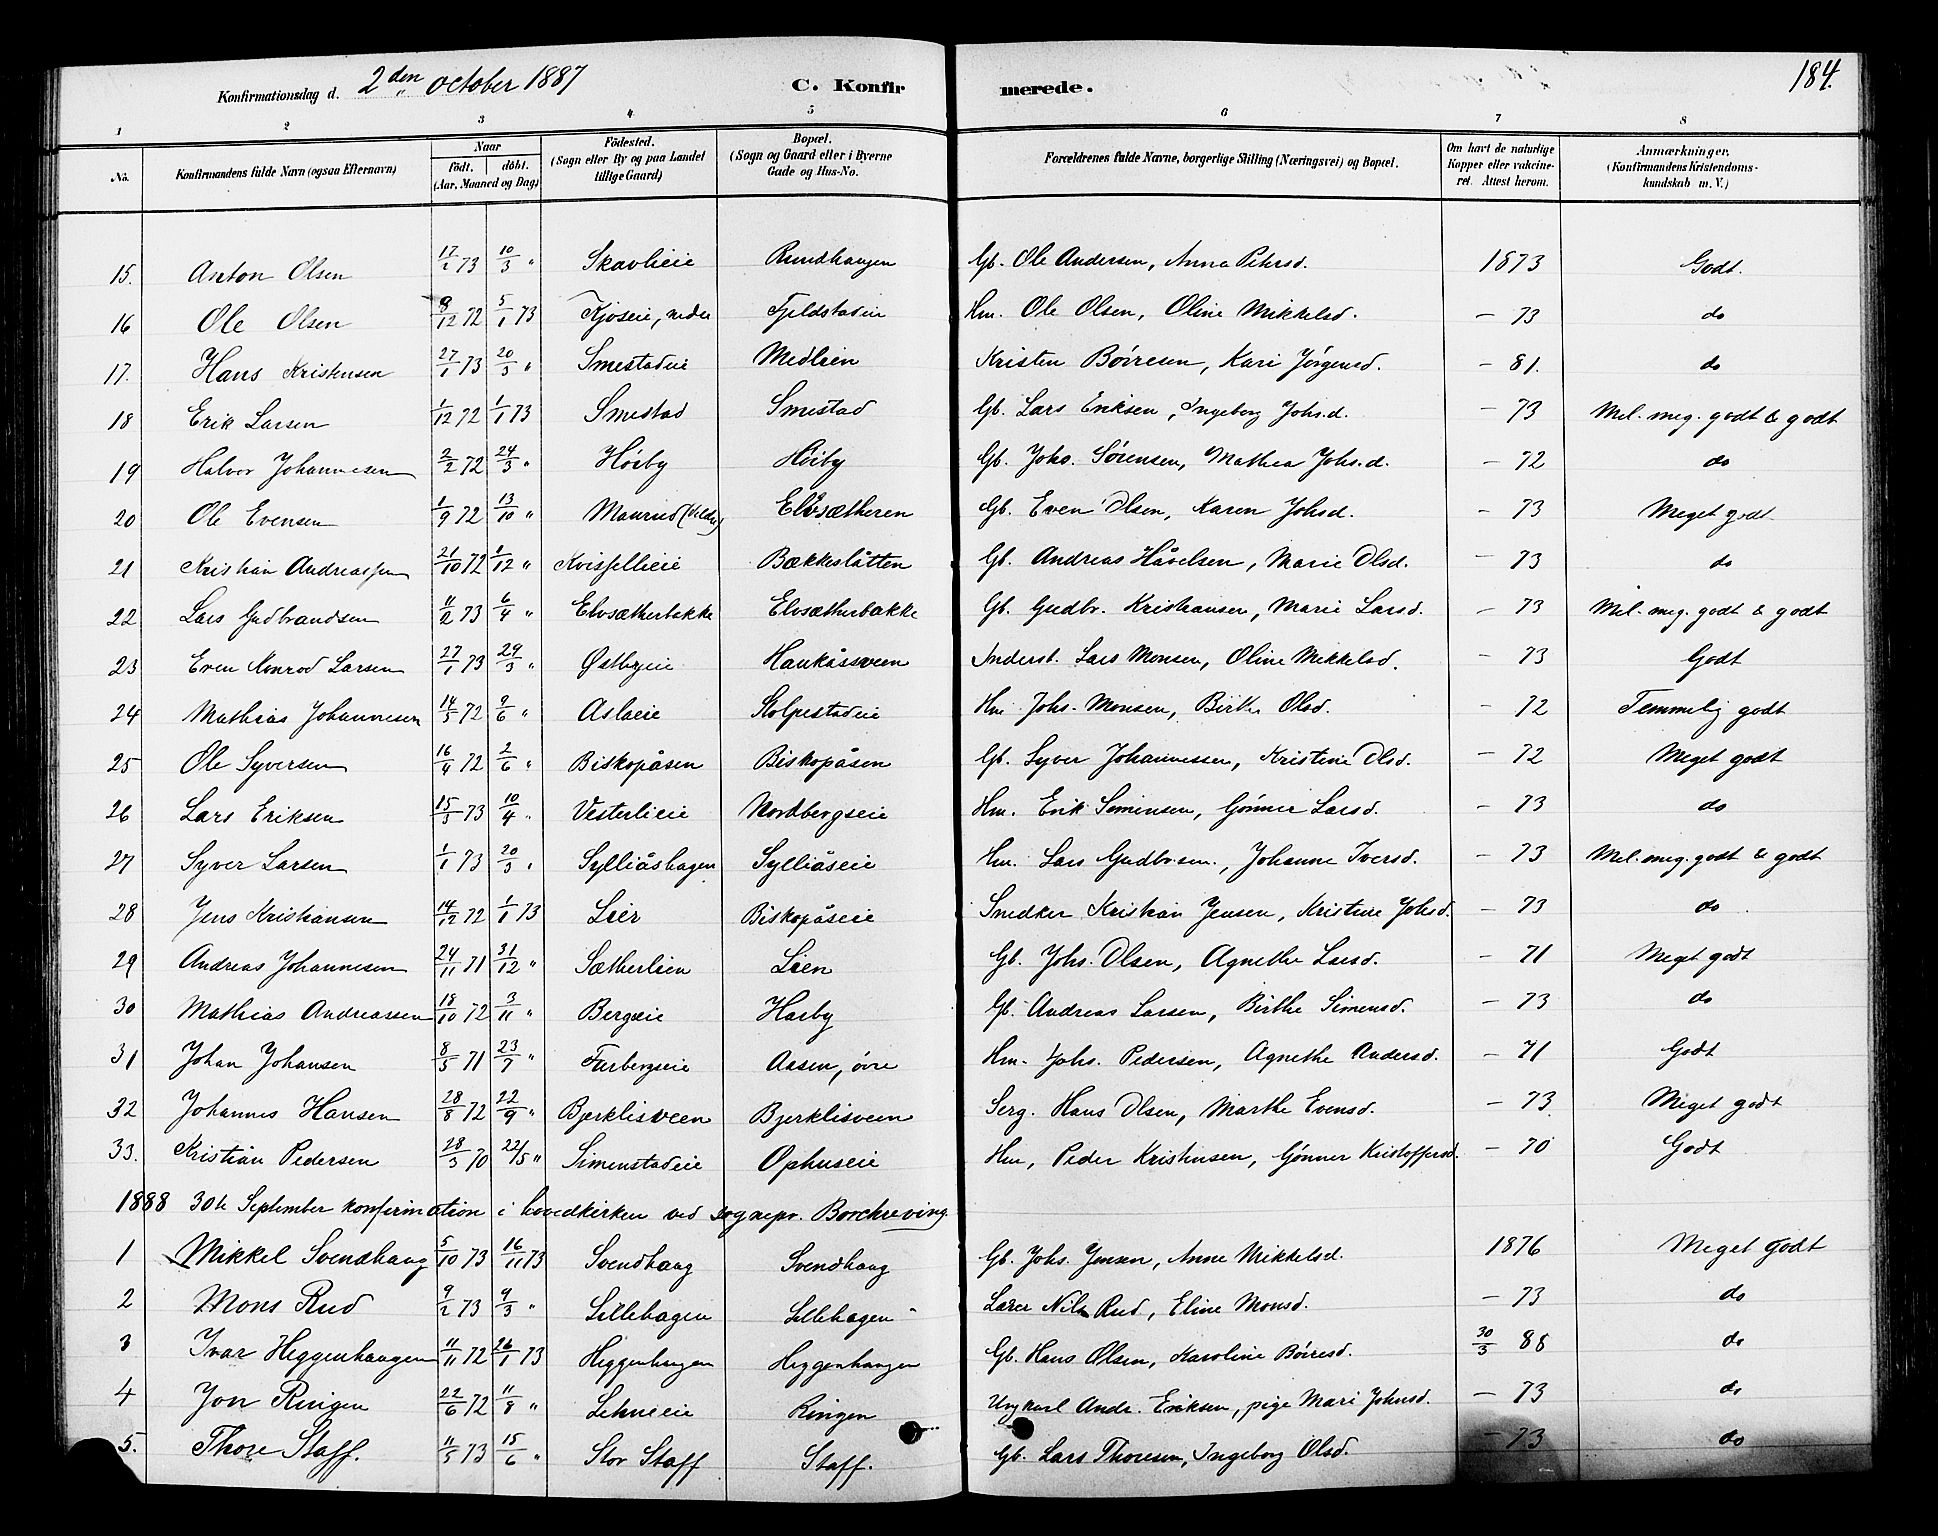 Konfirmationsdag d. 2den october 1887 C. Konfirmerede. 184.
1 2 3 4 5 6 7 8
No. Konfirmandens fulde Navn (ogsaa Efternavn) Naar födt. döbt. (Aar, Maaned og Dag) Födested. (Sogn eller By og paa Landet tillige Gaard) Bopæl. (Sogn og Gaard eller i Byerne Gade og Hus-No. Forældrenes fulde Navne, borgerlige Stilling (Næringsvei) og Bopæl. Om havt de naturlige Kopper eller vakcineret. Attest herom. Anmærkninger, (Konfirmandens Kristendomskundskab m. V.)
15. Anton Olsen 17/2 73 10/3 " Skavlieie Rundhaugen Gb. Ole Andersen, Anna Petersd. 1873 Godt.
16 Ole Olsen 9/12 72 5/1 73 Kjoseie, nedre Fjeldstadeie Hm. Ole Olsen, Oline Mikkelsd. - 73 do
17. Hans Kristensen 27/1 73 20/3 " Smestadeie Medlien Kristen Böiresen, Kari Jörgensd. - 81. do
18 Erik Larsen 1/12 72 1/1 73 Smestad Smestad Gb. Lars Eriksen, Ingeborg Johs.d. - 73 Mel. meg. godt & godt
19 Halvor Johannesen 2/2 72 24/3 " Hörby Hörby Gb. Johs. Sörensen, Mathea Johs.d. - 72 do
20 Ole Evensen 1/9 72 13/10 " Maurud Elvsætheren Gb. Even Olsen, Karen Johsd. - 73 Meget godt
21 Kristian Andreassen 21/10 72 1/12 " Kvisfellieie Bækkeslåtten Gb. Andreas Håvelsen, Marie Olsd. - 73 do
22 Lars Gudbrandsen 11/2 73 6/4 " Elvsætherbakke Elvsætherbakke Gb. Gudbr. Kristiansen, Marie Larsd. - 73 Mel. meg. godt & godt
23 Even Konrad Larsen 27/1 73 29/3 " Østbyeie Haukåssveen Inderst. Lars Monsen, Oline Mikkelsd. - 73 Godt
24 Mathias Johannesen 14/5 72 9/6 " Aslaeie Stolpestadeie Hm. Johs. Monsen, Birthe Olsd. - 72 Temmelig godt
25 Ole Syversen 16/4 72 2/6 " Biskopåsen Biskopåsen Gb. Syver Johannessen, Kristine Olsd. - 72 Meget godt
26 Lars Eriksen 15/3 73 10/4 " Vesterlieie Nordbergseie Hm. Erik Simensen, Gönner Larsd. - 73 do
27 Syver Larsen 1/1 73 20/3 " Sylliåshagen Sylliåseie Hm. Lars Gudbrsen., Johanne Iversd. - 73 Mel. meg. godt & godt
28 Jens Kristiansen 14/12 72 1/1 73 Lier Biskopåseie Snedker Kristian Jensen, Kristine Johsd. - 73 do
29 Andreas Johannesen 24/11 71 31/12 " Sætherlien Lien Gb. Johs. Olsen, Agnethe Larsd. - 71 Meget godt
30 Mathias Andreassen 18/10 72 3/11 " Bergseie Harby Gb. Andreas Larsen, Birthe Simensd. - 73 do
31 Johan Johansen 8/5 71 23/7 " Furbergseie Aasen, övre Hm. Johs. Pedersen, Agnethe Andersd. - 71 Godt
32 Johannes Hansen 28/8 72 22/9 " Bjerklisveen Bjerklisveen Serg. Hans Olsen, Marthe Evensd. - 73 Meget godt
33. Kristian Pedersen 28/3 70 22/5 " Simenstadeie Ophuseie Hm, Peder Kristensen, Gönner Kristoffersd. - 70 Godt
1888 30te September konfirmation i hovedkirken ved sognepr. Borchrevink
1 Mikkel Svendhaug 5/10 73 16/11 73 Svendhaug Svendhaug Gb. Johs. Jensen, Anne Mikkelsd. 1876 Meget godt
2 Mons Rud 9/2 73 9/3 " Lillehagen Lillehagen Lærer Nils Rud, Eline Monsd. - 73 do
3 Ivar Heggenhaugen 11/11 72 26/1 73 Heggenhaugen Heggenhaugen Gb. Hans Olsen, Karoline Böiresd. 30/3 88 do
4 Jon Ringen 22/6 72 11/8 " Lehneeie Ringen Ungkarl Andr. Eriksen, pige Mari Johnsd. - 73 do
5. Thore Staff. 11/5 73 15/6 " Stor Staff Staff. Gb. Lars Thoresen, Ingeborg Olsd. - 73 do